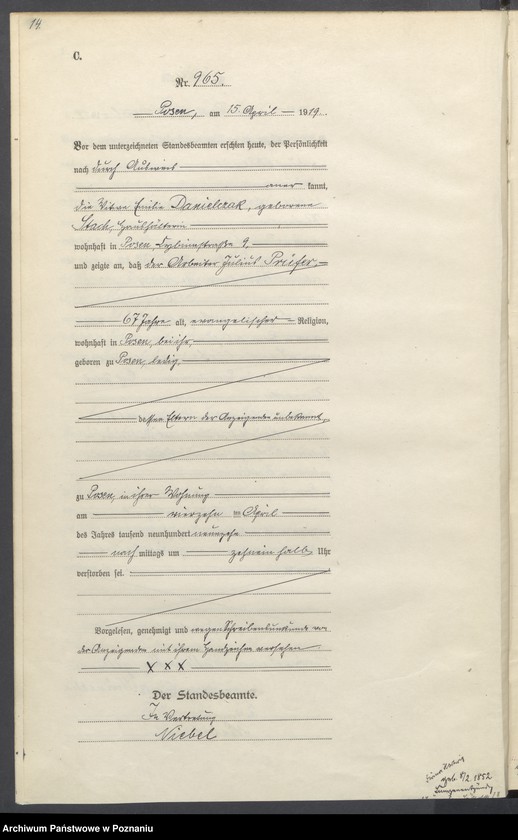 14.
C.
Nr. 965.
Posen, am 15. April 1919.
Vor dem unterzeichneten Standesbeamten erschien heute, der Persönlichkeit
nach durch Ausweis
aner kannt,
die Witwe Emilie Danielczak, geborene
Stach, Haushälterin
wohnhaft in Posen 9,
und zeigte an, daß der Arbeiter Julius Prüfer,
67 Jahre alt, evangelischer Religion,
wohnhaft in Posen, bei ihr,
geboren zu Posen, ledig,
dessen Eltern der Anzeigenden unbekannt,
zu Posen, in ihrer Wohnung
am vierzehn ten April
des Jahres tausend neunhundert neunzehn
nach mittags um zehneinhalb Uhr
verstorben sei.
Vorgelesen, genehmigt und wegen Schreibensunkunde von
der Anzeigenden mit ihrem Handzeichen versehen
x x x
Der Standesbeamte.
In Vertretung
Niebel
geb. 2. 1852
Lungenentzündg.
Archiwum Państwowe w Poznaniu